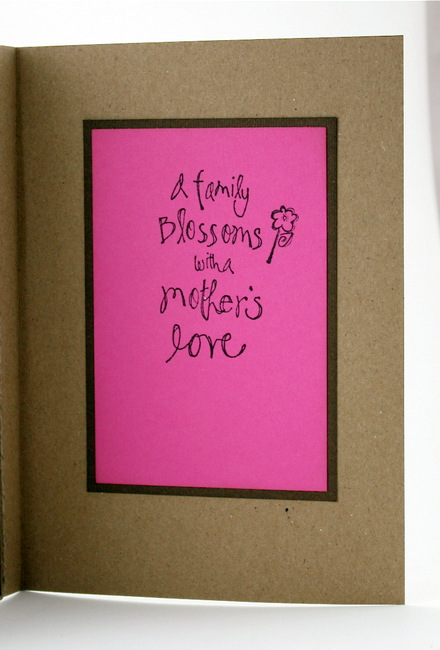 a family
Blossoms
with a
mother's
love